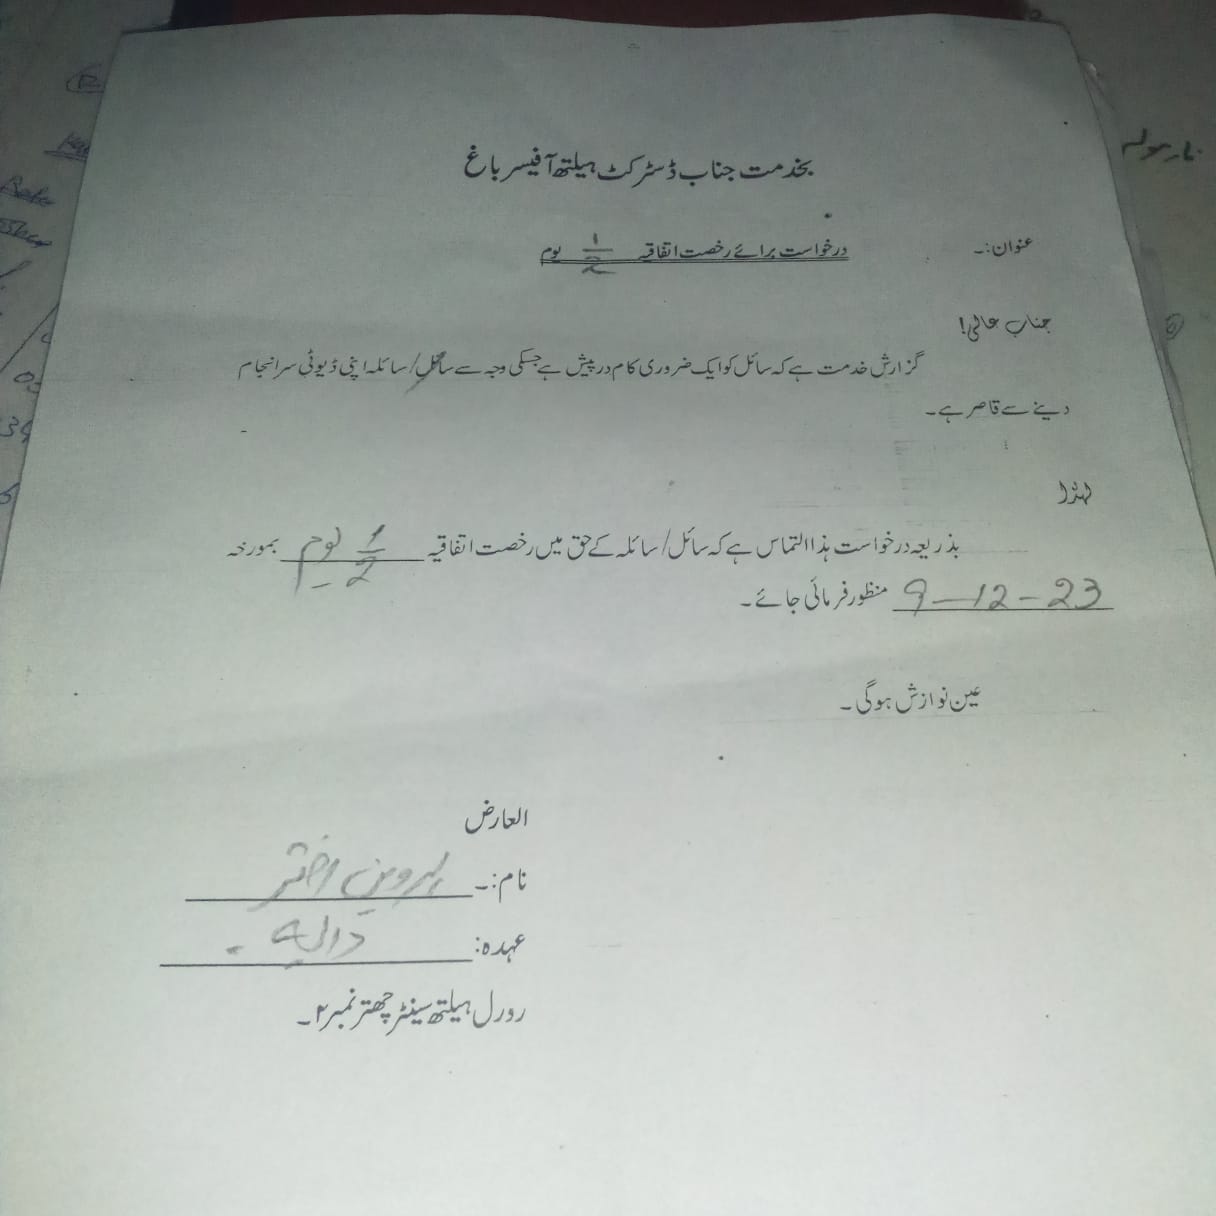 بخدمت جناب ڈسٹرکٹ ہیلتھ آفیسر باغ
عنوان:۔ درخواست برائے رخصت اتفاقیہ 1/2 یوم
جناب عالی!
گزارش خدمت ہے کہ سائل کو ایک ضروری کام درپیش ہے جسکی وجہ سے سائل/سائلہ اپنی ڈیوٹی سرانجام
دینے سے قاصر ہے۔
لہذا
بذریعہ درخواست ہذا التماس ہے کہ سائل/سائلہ کے حق میں رخصت اتفاقیہ 1/2 یوم بمورخہ
9-12-23 منظور فرمائی جائے۔
عین نوازش ہوگی۔
العارض
نام:۔ پروین اختر
عہدہ: دایہ۔
رورل ہیلتھ سینٹر چھتر نمبر ۲۔